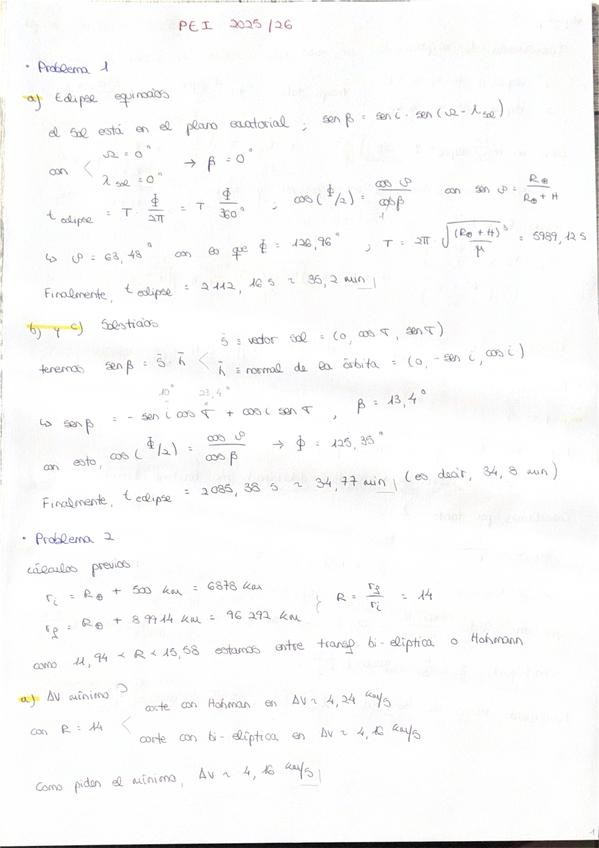 PEI 2025/26
· Problema 1
a) Eclipse equinoccios
el Sol está en el plano ecuatorial ; sen β = sen i · sen (Ω - λ sol)
con < Ω = 0° λ sol = 0° → β = 0°
t eclipse = T · Φ/2π = T Φ/360° , cos (Φ/2) = cos φ / cos β con sen φ = R⊕ / R⊕ + H
1
↳ φ = 63,48° con lo que Φ = 126,96° ; T = 2π · √((R⊕ + H)³/μ) = 5989,12 s
Finalmente, t eclipse = 2112,16 s ≈ 35,2 min
b) y c) Solsticios
tenemos sen β = s̄ · n̄ < s̄ ≡ vector sol = (0, cos τ, sen τ)
n̄ ≡ normal de la órbita = (0, -sen i, cos i)
10° 23,4°
↳ sen β = - sen i cos τ + cos i sen τ , β = 13,4°
con esto, cos (Φ/2) = cos φ / cos β → Φ = 125,35°
Finalmente, t eclipse = 2085,38 s ≈ 34,77 min (es decir, 34,8 min)
· Problema 2
cálculos previos:
ri = R⊕ + 500 km = 6878 km
; R = rf/ri = 14
rf = R⊕ + 89914 km = 96 292 km
como 11,94 < R < 15,58 estamos entre transf bi-elíptica o Hohmann
a) ΔV mínimo?
con R = 14 < corte con Hohman en ΔV ≈ 4,24 km/s
corte con bi-elíptica en ΔV ≈ 4,16 km/s
Como piden el mínimo, ΔV ≈ 4,16 km/s
1